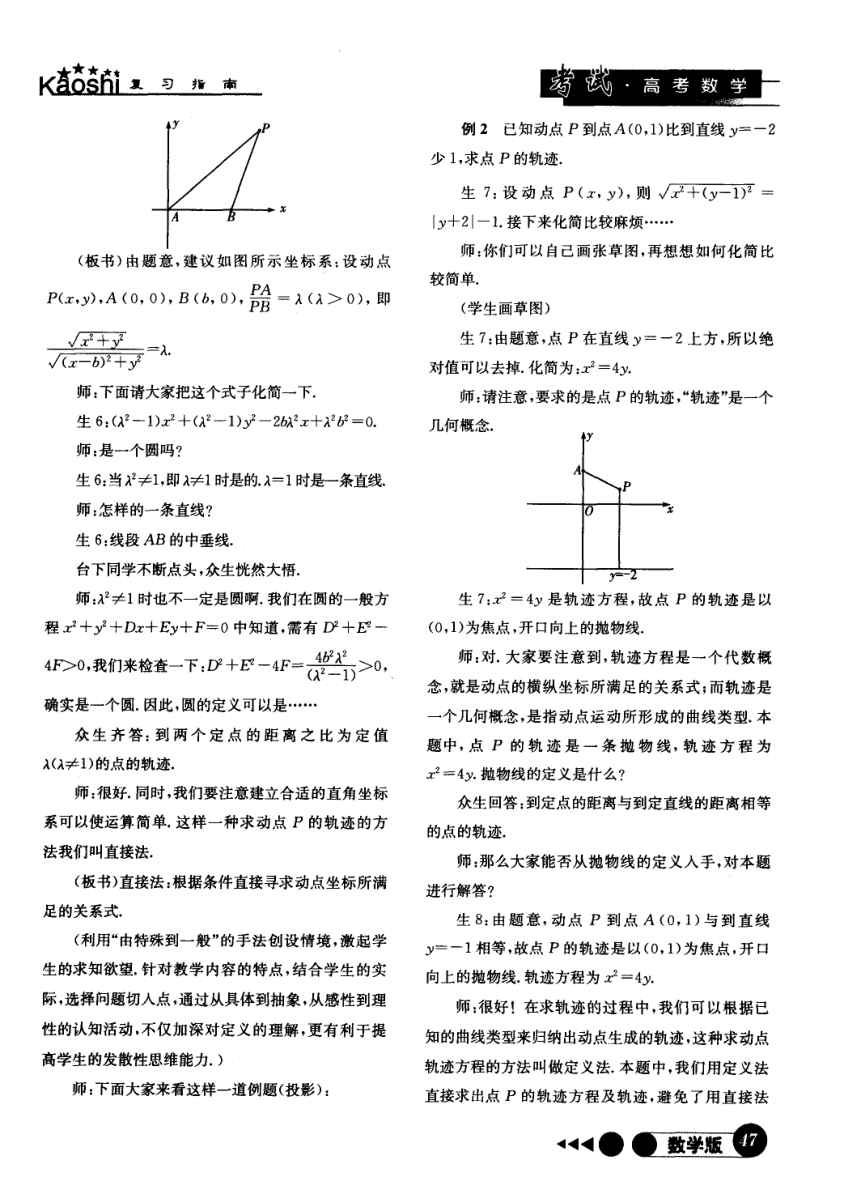 Kaoshi 复习指南
考试·高考数学
y
P
A
B
x
(板书)由题意,建议如图所示坐标系;设动点
P(x,y),A(0,0),B(b,0),PA/PB=λ(λ>0),即
√(x²+y²)/√((x-b)²+y²)=λ.
师:下面请大家把这个式子化简一下.
生6:(λ²-1)x²+(λ²-1)y²-2bλ²x+λ²b²=0.
师:是一个圆吗?
生6:当λ²≠1,即λ≠1时是的.λ=1时是一条直线.
师:怎样的一条直线?
生6:线段AB的中垂线.
台下同学不断点头,众生恍然大悟.
师:λ²≠1时也不一定是圆啊.我们在圆的一般方
程x²+y²+Dx+Ey+F=0中知道,需有D²+E²-
4F>0,我们来检查一下:D²+E²-4F=4b²λ²/(λ²-1)>0,
确实是一个圆.因此,圆的定义可以是……
众生齐答:到两个定点的距离之比为定值
λ(λ≠1)的点的轨迹.
师:很好.同时,我们要注意建立合适的直角坐标
系可以使运算简单.这样一种求动点P的轨迹的方
法我们叫直接法.
(板书)直接法:根据条件直接寻求动点坐标所满
足的关系式.
(利用“由特殊到一般”的手法创设情境,激起学
生的求知欲望.针对教学内容的特点,结合学生的实
际,选择问题切入点,通过从具体到抽象,从感性到理
性的认知活动,不仅加深对定义的理解,更有利于提
高学生的发散性思维能力.)
师:下面大家来看这样一道例题(投影):
例2 已知动点P到点A(0,1)比到直线y=-2
少1,求点P的轨迹.
生7:设动点P(x,y),则√(x²+(y-1)²)=
|y+2|-1.接下来化简比较麻烦……
师:你们可以自己画张草图,再想想如何化简比
较简单.
(学生画草图)
生7:由题意,点P在直线y=-2上方,所以绝
对值可以去掉.化简为:x²=4y.
师:请注意,要求的是点P的轨迹,“轨迹”是一个
几何概念.
y
A
P
O
x
y=-2
生7:x²=4y是轨迹方程,故点P的轨迹是以
(0,1)为焦点,开口向上的抛物线.
师:对.大家要注意到,轨迹方程是一个代数概
念,就是动点的横纵坐标所满足的关系式;而轨迹是
一个几何概念,是指动点运动所形成的曲线类型.本
题中,点P的轨迹是一条抛物线,轨迹方程为
x²=4y.抛物线的定义是什么?
众生回答:到定点的距离与到定直线的距离相等
的点的轨迹.
师:那么大家能否从抛物线的定义入手,对本题
进行解答?
生8:由题意,动点P到点A(0,1)与到直线
y=-1相等,故点P的轨迹是以(0,1)为焦点,开口
向上的抛物线.轨迹方程为x²=4y.
师:很好!在求轨迹的过程中,我们可以根据已
知的曲线类型来归纳出动点生成的轨迹,这种求动点
轨迹方程的方法叫做定义法.本题中,我们用定义法
直接求出点P的轨迹方程及轨迹,避免了用直接法
数学版 47